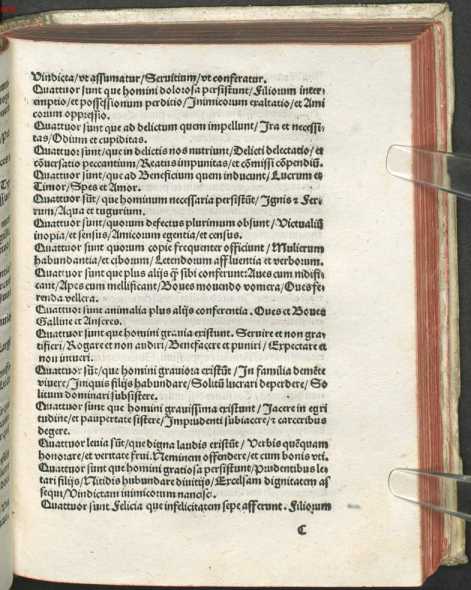 Vindicta/vt assumatur/Seruitium/vt conferatur.
Quattuor sunt que homini dolorosa persistunt/Filiorum inter⸗
emptio/et possessionum perditio/Inimicorum exaltatio/et Ami
corum oppressio.
Quattuor sunt que ad delictum quem impellunt/Ira et necessi⸗
tas/Odium et cupiditas.
Quattuor sunt/que in delictis nos nutriunt/Delicti delectatio/et
cōuersatio peccantium/Reatus impunitas/et cōmissi cōpendiū.
Quattuor sunt/que ad Beneficium quem inducunt/Lucrum et
Timor/Spes et Amor.
Quattuor sūt/que hominum necessaria persistūt/Ignis et Fer⸗
rum/Aqua et tugurium.
Quattuor sunt/quorum defectus plurimum obsunt/Victualiū
inopia/et sensus/Amicorum egentia/et census.
Quattuor sunt quorum copie frequenter officiunt/Mulierum
habundantia/et ciborum/Letendorum affluentia et verborum.
Quattuor sunt que plus alijs ꝙ sibi conferunt:Aues cum nidifi⸗
cant/Apes cum mellificant/Boues mouendo vomera/Oues fe⸗
renda vellera.
Quattuor sunt animalia plus alijs conferentia. Oues et Boues
Galline et Anseres.
Quattuor sunt que homini grauia existunt. Seruire et non gra⸗
tificri/Rogare et non audiri/Benefacere et puniri/Expectare et
non intueri.
Quattuor sūt/que homini grauiora existūt/In familia demēte
viuere/Iniquis filijs habundare/Solitū lucrari deperdere/So
litum dominari subsistere.
Quattuor sunt que homini grauissima existunt/Jacere in egri
tudine/et paupertate sistere/Imprudenti subiacere/et carceribus
degere.
Quattuor leuia sūt/que digna laudis existūt/Verbis quēquam
honorare/et veritate frui.Neminem offendere/et cum bonis vti.
Quattuor sunt que homini gratiosa persistunt/Prudentibus le⸗
tari filijs/Nitidis hubundare diuitijs/Excelsam dignitatem as
sequi/Vindictam inimicorum nancisci.
Quattuor sunt Felicia que infelicitatem sepe afferunt. Filiorum
C